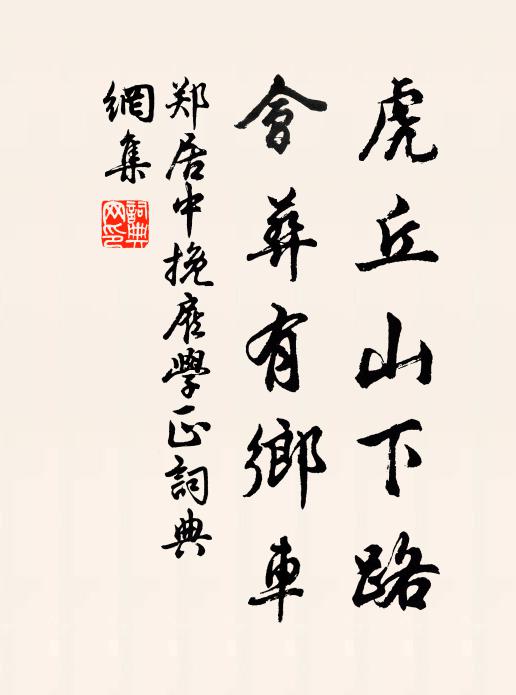 虎丘山下路
會葬有鄉車
郑居中挽應學正詞典
網集
詞典網印